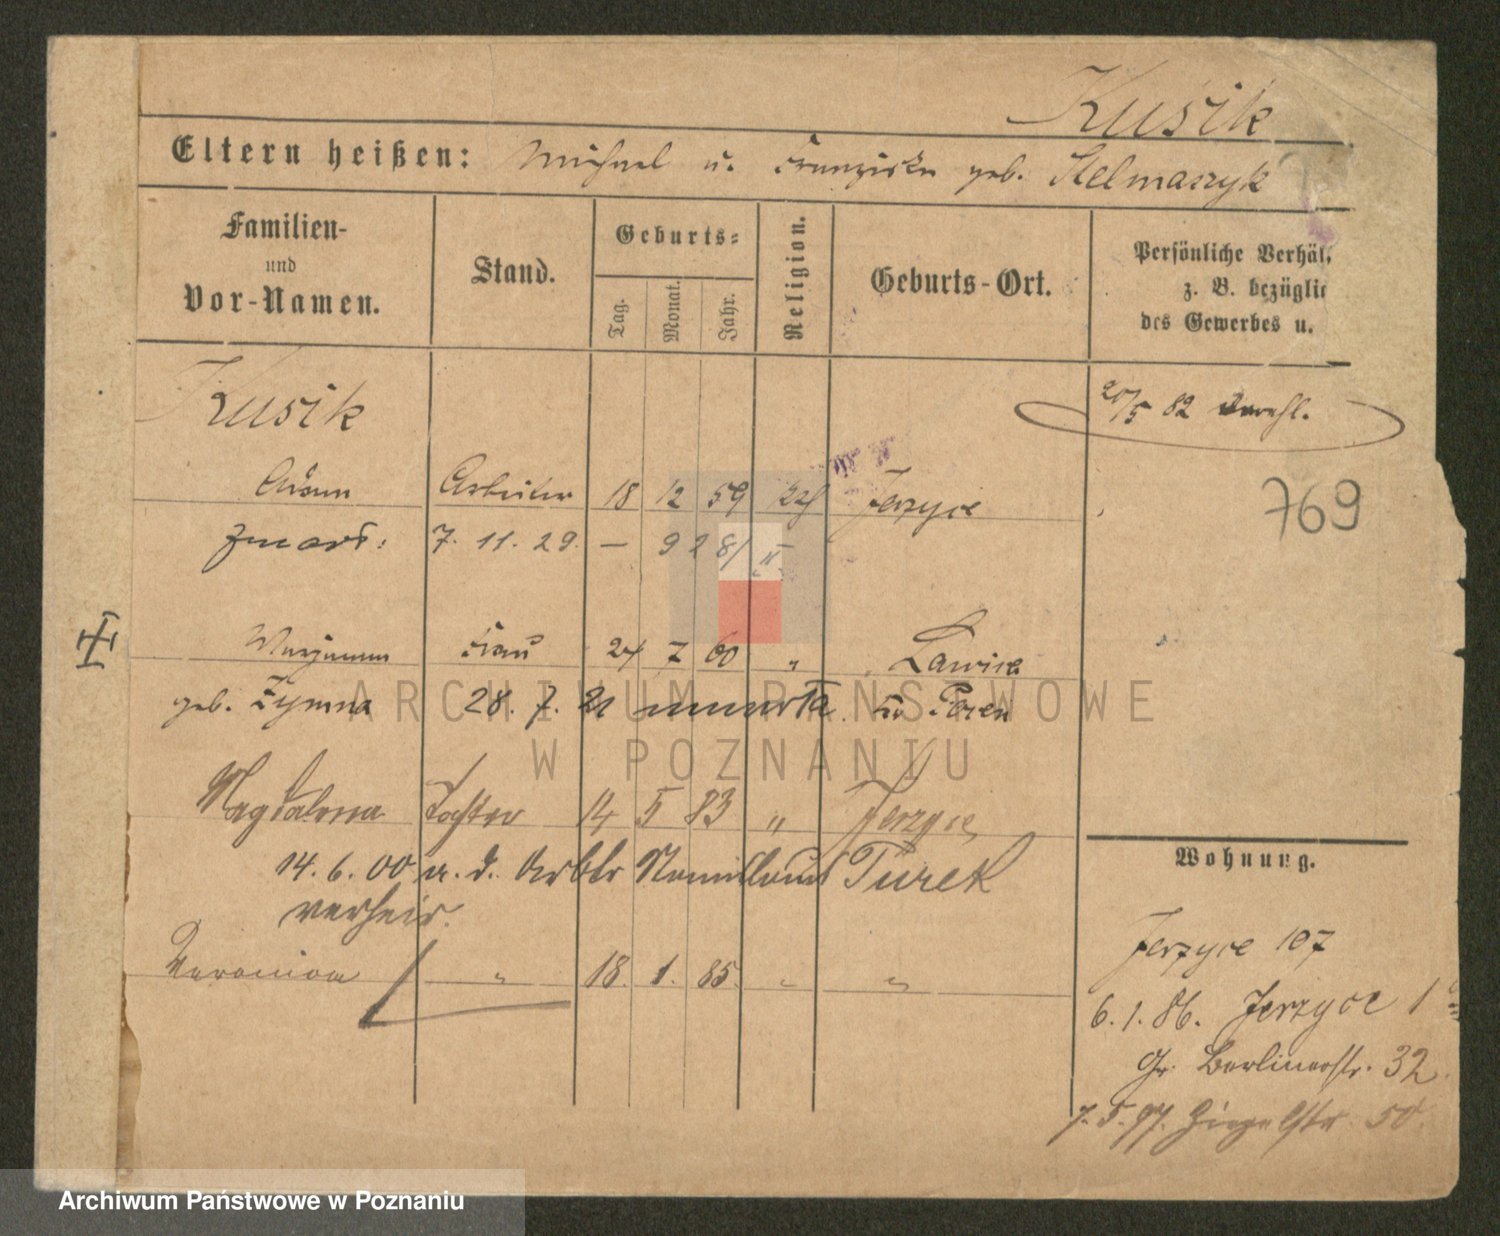 Kusik
Eltern heißen: Michael u. Franziska geb. Stelmaszyk
Familien-
und
Vor-Namen.
Stand.
Geburts-
Tag.
Monat.
Jahr.
Religion.
Geburts-Ort.
Persönliche Verhäl
z. B. bezüglic
des Gewerbes u.
Kusik
20/5 82 verehl.
Adam Arbeiter 18 12 59 kth Jerzyce
769
zmarł: 7. 11. 29. — 928/
Marjanna Frau 24 7 60 " Lawica
geb. Zymna 28. 7. 21 umarła in Posen
Magdalena Tochter 14 5 83 " Jerzyce
14. 6. 00 m. d. Arbtr Turek
verheir.
Veronica " 18. 1. 85. " "
Wohnung.
Jerzyce 107
6. 1. 86. Jerzyce 1
Gr. Berlinerstr. 32
7. 5. 97. Ziegelstr. 50.
ARCHIWUM PAŃSTWOWE
W POZNANIU
Archiwum Państwowe w Poznaniu